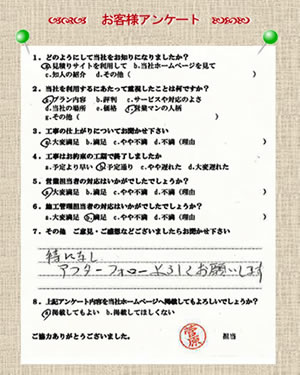 お客様アンケート
1、どのようにして当社をお知りになりましたか？
a.見積りサイトを利用して b.当社ホームページを見て
c.知人の紹介 d.その他（ ）
2、当社を利用するにあたって重視したことは何ですか？
a.プラン内容 b.評判 c.サービスや対応のよさ
d.当社の場所 e.価格 f.営業マンの人柄
g.その他（ ）
3、工事の仕上がりについてお聞かせ下さい
a.大変満足 b.満足 c.やや不満 d.不満（理由 ）
4、工事はお約束の工期で終了しましたか
a.予定より早い b.予定通り c.やや遅れた d.大変遅れた
5、営業担当者の対応はいかがでしたでしょうか？
a.大変満足 b.満足 c.やや不満 d.不満（理由 ）
6、施工管理担当者の対応はいかがでしたでしょうか？
a.大変満足 b.満足 c.やや不満 d.不満（理由 ）
7、その他 ご意見・ご感想などございましたらお聞かせ下さい
特になし
アフターフォローよろしくお願いします
8、上記アンケート内容を当社ホームページへ掲載してもよろしいでしょうか？
a.掲載してもよい b.掲載してほしくない
ご協力ありがとうございました。 担当